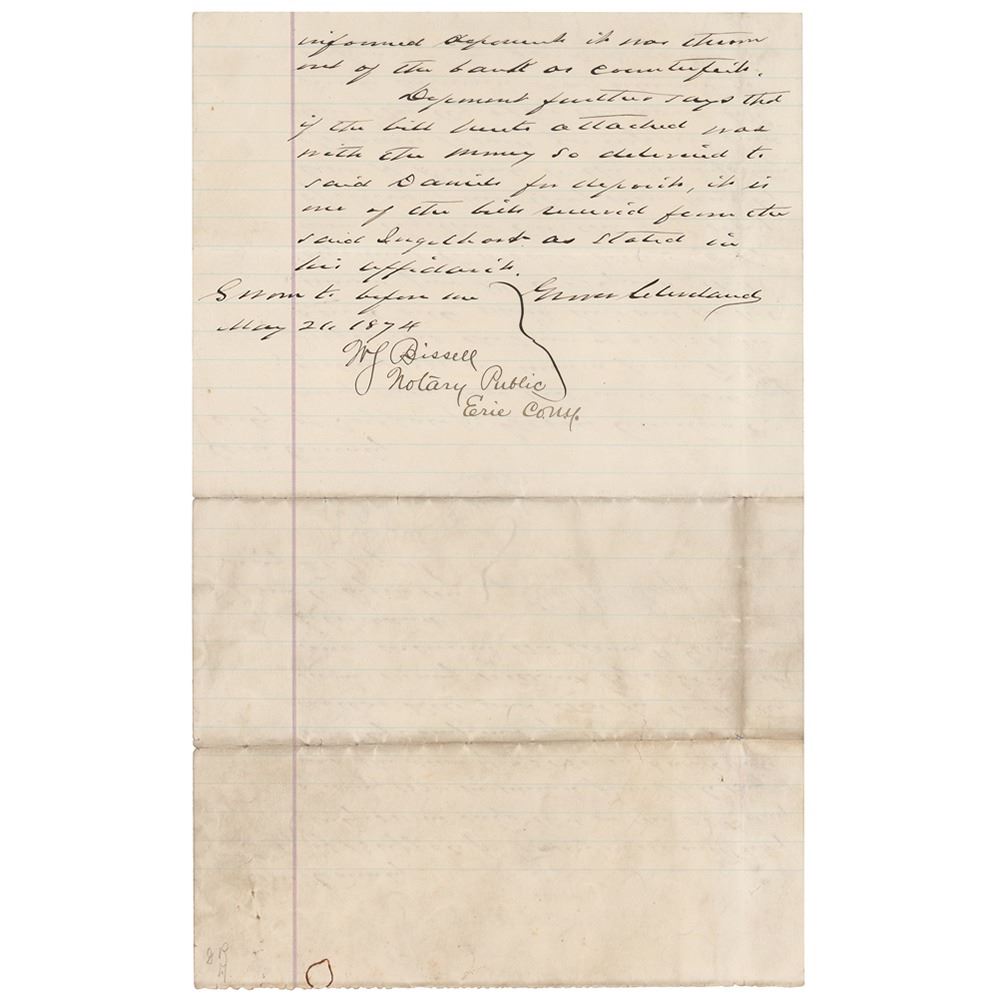 informed deponent it was thrown
out of the bank as counterfeit.
Deponent further says that
if the bill hereto attached was
with the money so delivered to
said Daniels for deposit, it is
one of the bills received from the
said Ingelhart as stated in
his affidavit.
Sworn to before me Grover Cleveland
May 21, 1874
Bissell
Notary Public
Erie Co NY.